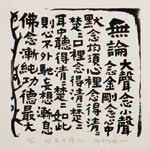 無論大聲念小聲
念金剛念心中
默念均須心裡念得清清
楚楚口裡念得清清楚楚
耳中聽得清清楚楚如此
則心不外馳妄想漸息
佛念漸純功德最大